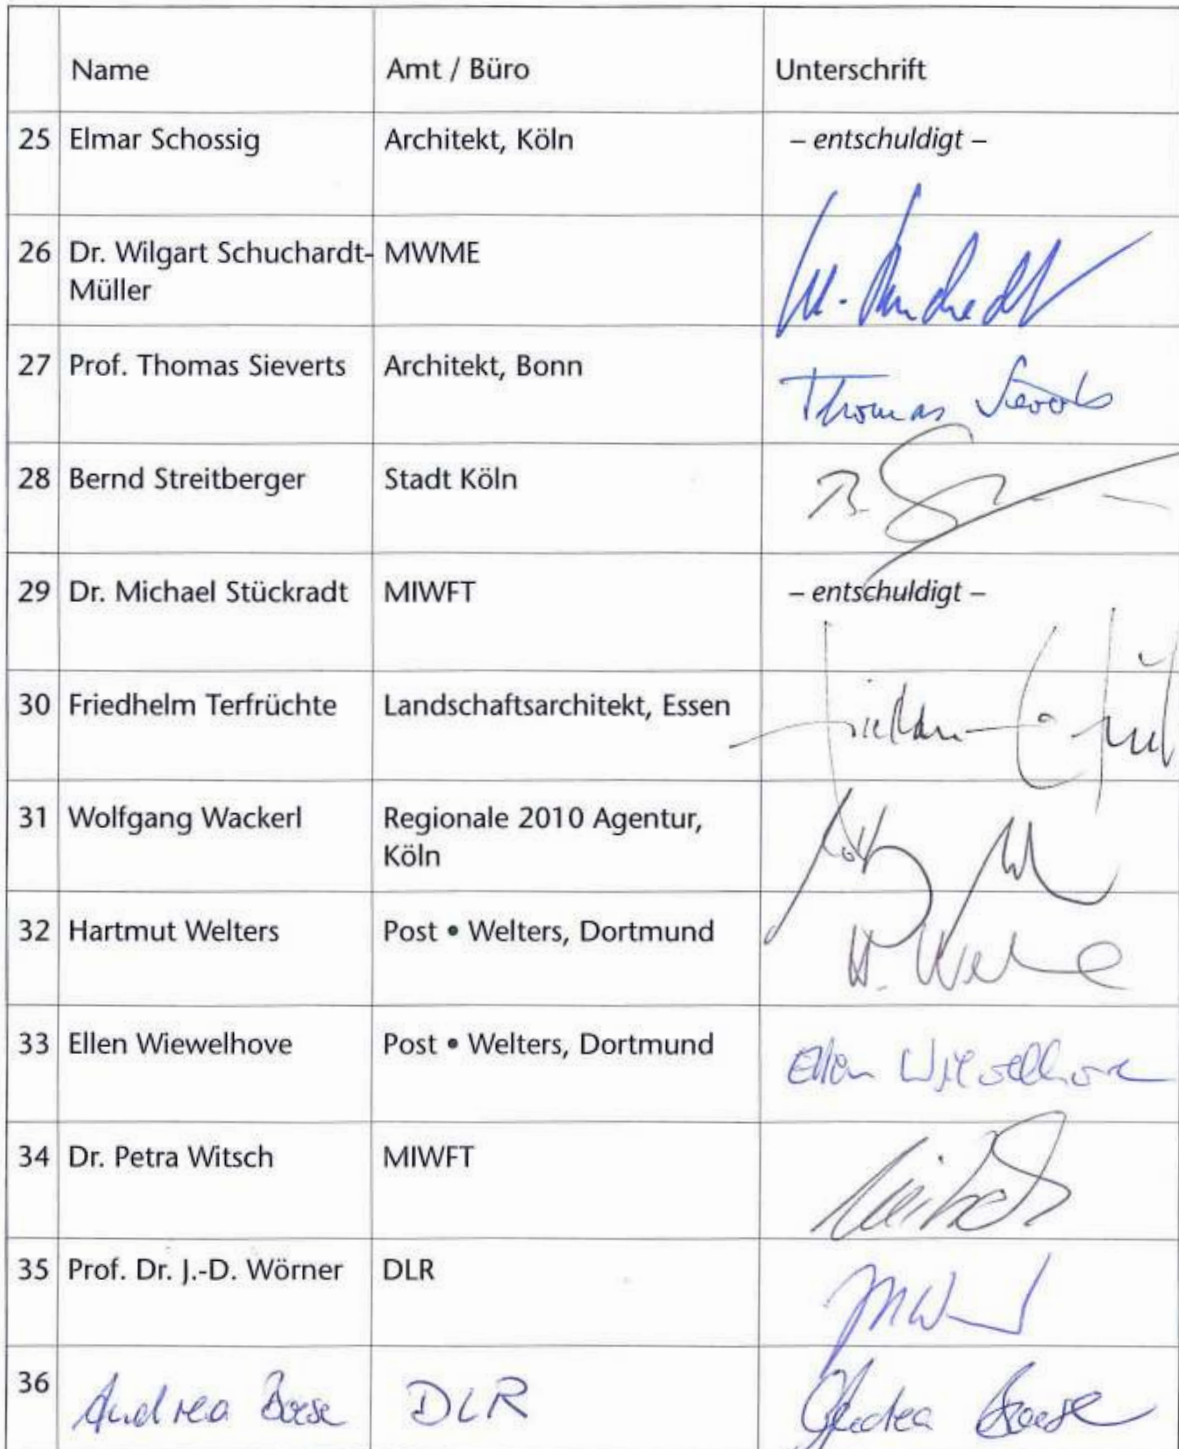 Name Amt / Büro Unterschrift
25 Elmar Schossig Architekt, Köln – entschuldigt –
26 Dr. Wilgart Schuchardt- MWME
Müller
27 Prof. Thomas Sieverts Architekt, Bonn Thomas Sieverts
28 Bernd Streitberger Stadt Köln B.
29 Dr. Michael Stückradt MIWFT – entschuldigt –
30 Friedhelm Terfrüchte Landschaftsarchitekt, Essen
31 Wolfgang Wackerl Regionale 2010 Agentur,
Köln
32 Hartmut Welters Post • Welters, Dortmund H.
33 Ellen Wiewelhove Post • Welters, Dortmund Ellen Wiewelhove
34 Dr. Petra Witsch MIWFT
35 Prof. Dr. J.-D. Wörner DLR
36 Andrea Boese DLR Andrea Boese